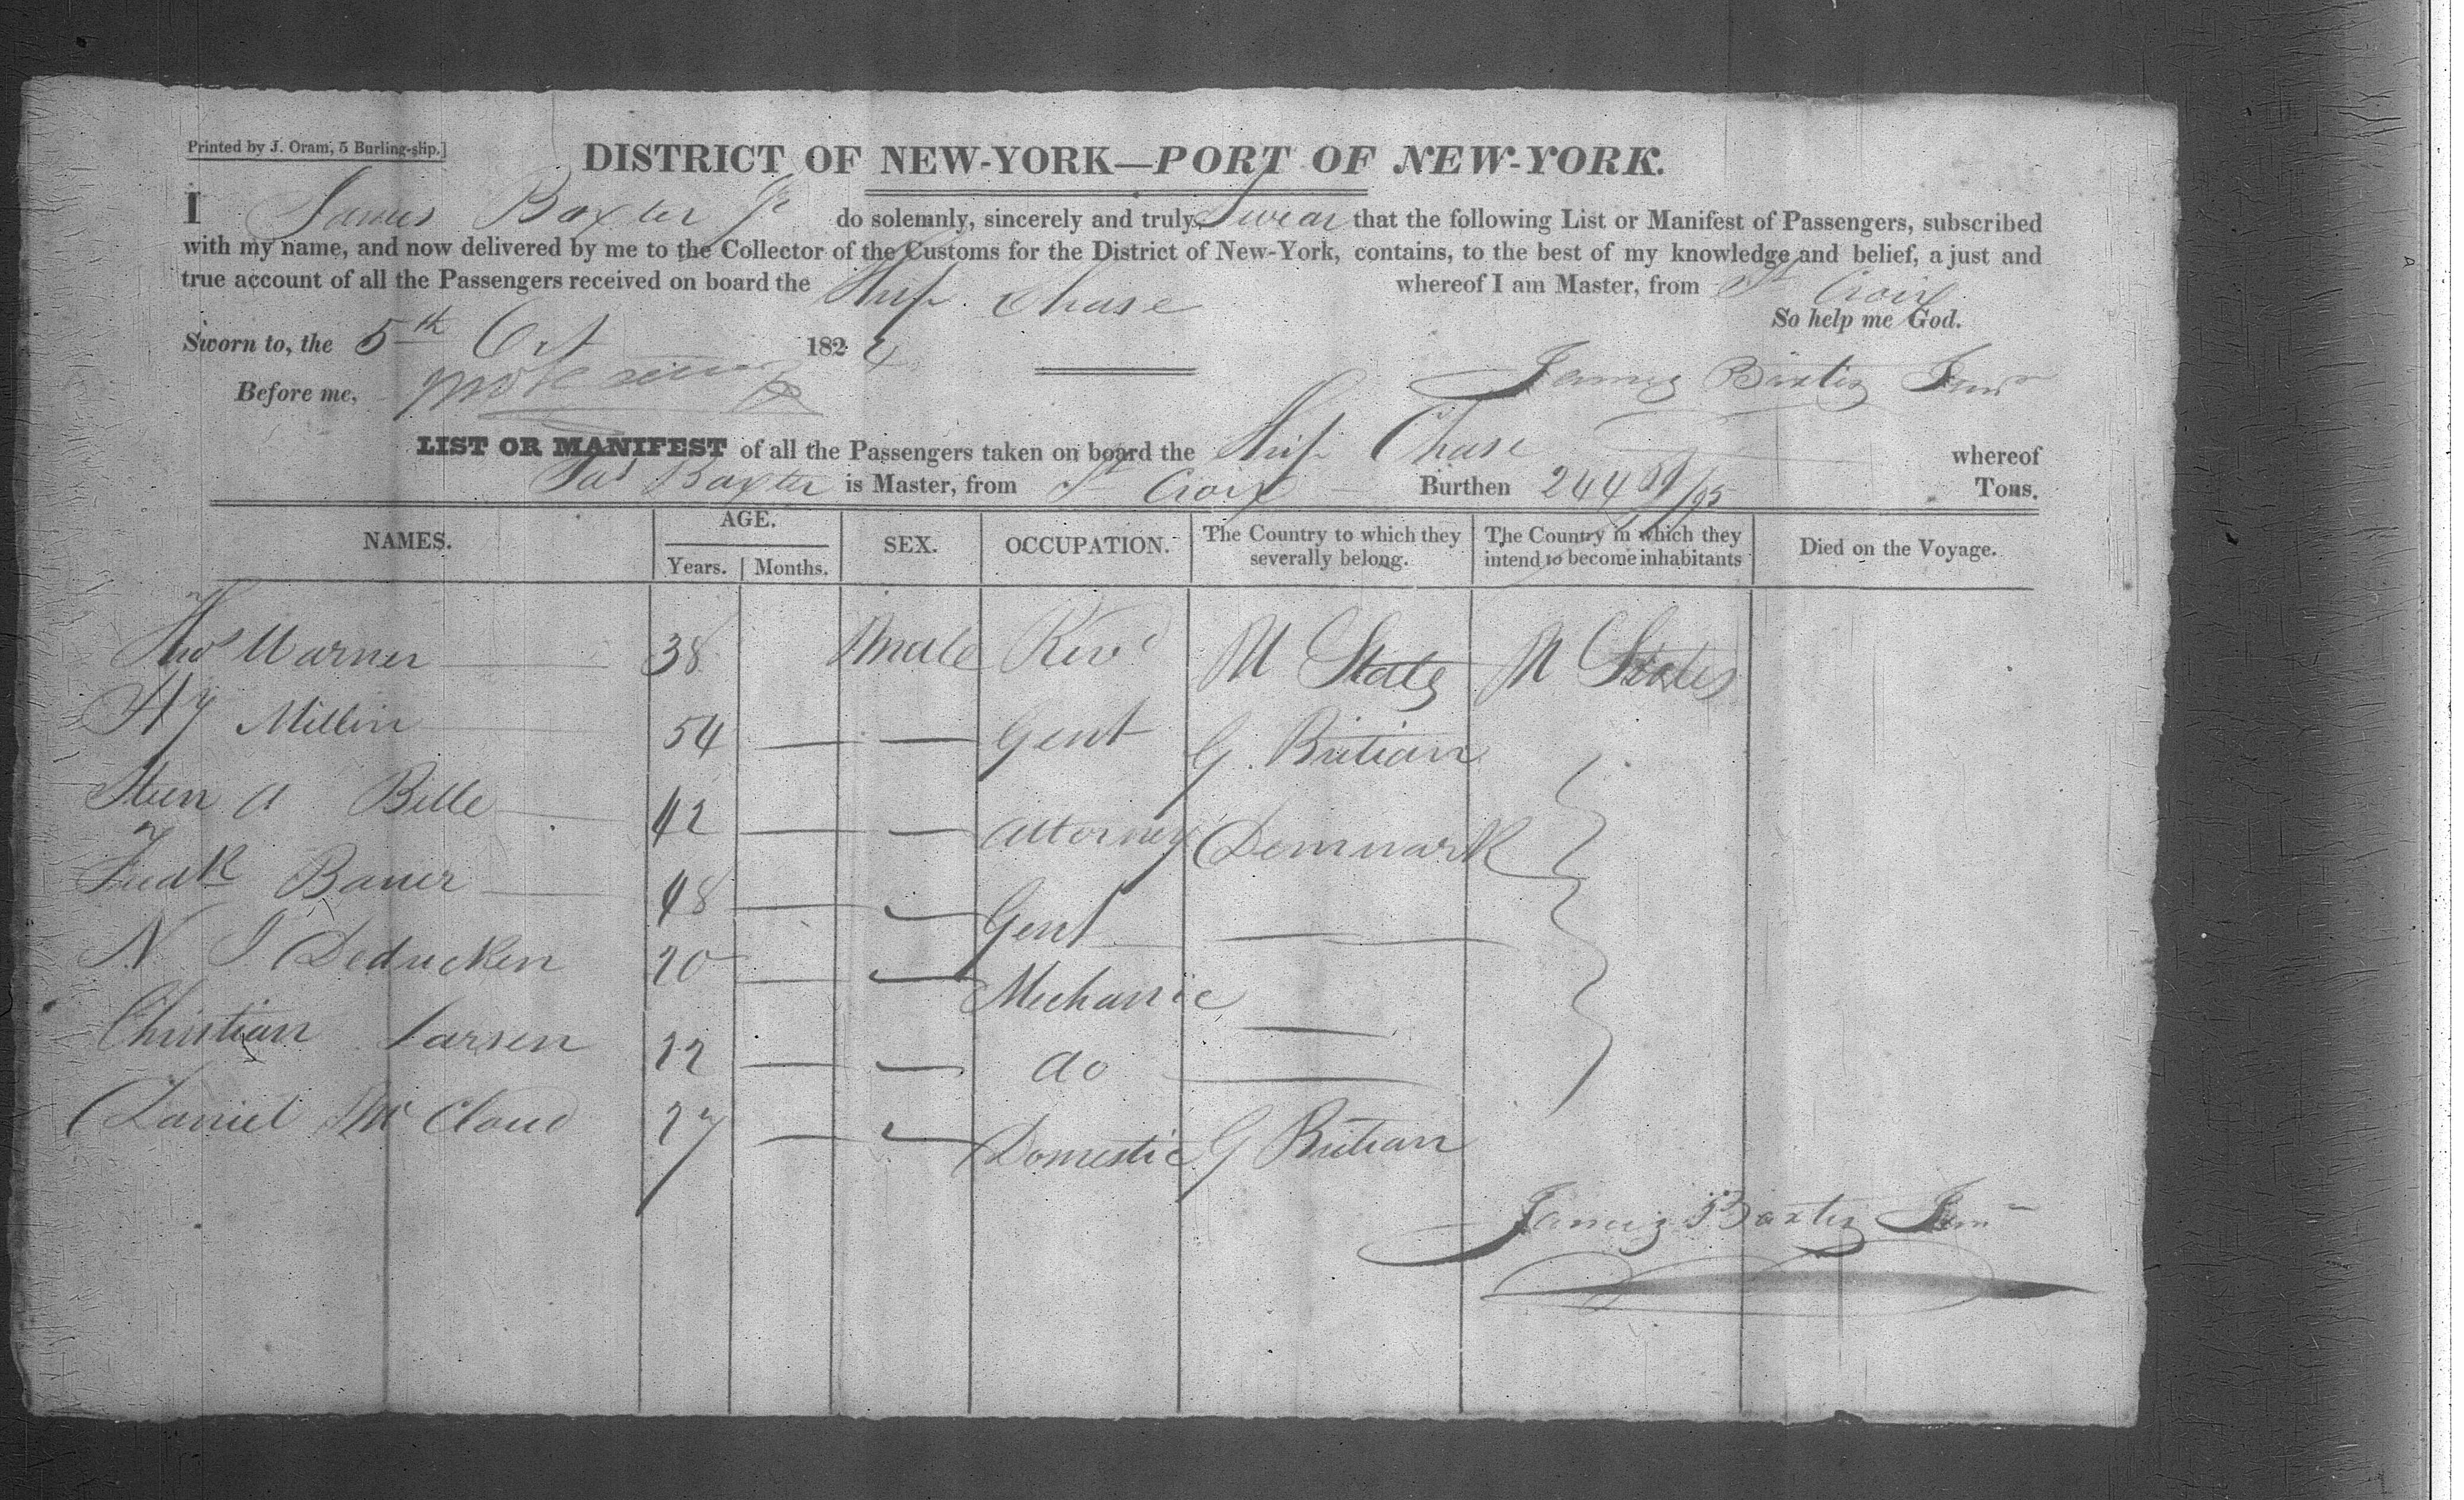 Printed by J. Oram, 5 Burling-slip.]
DISTRICT OF NEW-YORK—PORT OF NEW-YORK.
I James Baxter Jr do solemnly, sincerely and truly Swear that the following List or Manifest of Passengers, subscribed
with my name, and now delivered by me to the Collector of the Customs for the District of New-York, contains, to the best of my knowledge and belief, a just and
true account of all the Passengers received on board the Ship Chase whereof I am Master, from St Croix
So help me God.
Sworn to, the 5th Oct 1824
James Baxter Junr
Before me,
LIST OR MANIFEST of all the Passengers taken on board the Ship Chase whereof
Jas Baxter is Master, from St Croix Burthen 244 /95 Tons.
NAMES. AGE. Years. Months. SEX. OCCUPATION. The Country to which they severally belong. The Country in which they intend to become inhabitants Died on the Voyage.
Thos Warner 38 Male Revd U States U States
Hy Millin 54 — — Gent G. Britian
Steen A Bille 42 — — Attorney Denmark
Fredk Bauer 48 — — Gent —
N J Dedricken 20 — — Mechanic —
Christian Larsen 22 — — do —
Daniel McCloud 27 — — Domestic G Britian
James Baxter Junr